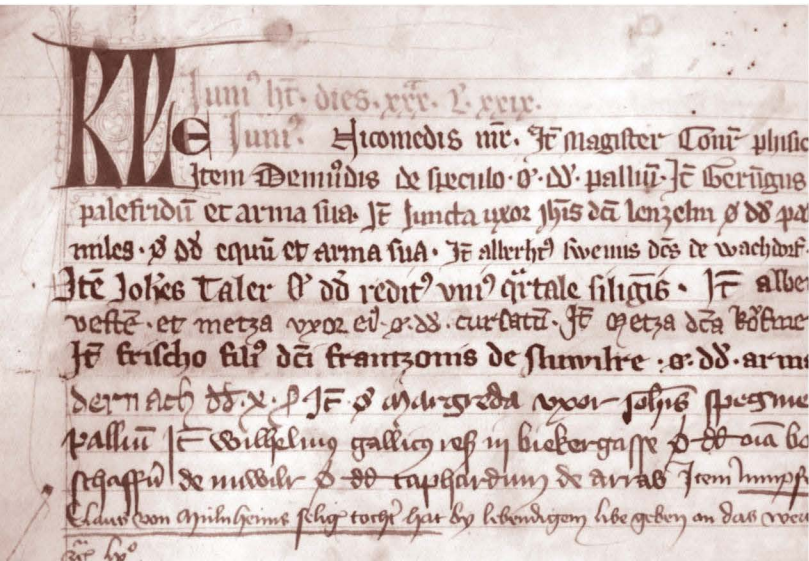 KL Juniꝰ ht̄. dies. xxx. L. xxix.
e Juniꝰ. Nicomedis mr̄. It̄ Magister Conr̄ phisic
Item Demūdis de speculo. ꝋ. dd̄. palliū. It̄ Gerūgus
palefridū et arma sua. It̄ Juncta uxor Joh̄is dc̄i lenzelin ꝋ dd̄ pa
miles. ꝋ dd̄ equū et arma sua. It̄ alberhtꝰ dc̄s de wachdorf.
Itē Joh̄es Taler ꝋ dd̄ redit' uniꝰ qr̄tale siligīs. It̄ albe
vestē. et metza uxor eiꝰ. ꝋ. dd̄. cursatū. It̄ Metza dc̄a
It̄ frischo filiꝰ dc̄i frantzonis de . ꝋ. dd̄. arm
dernach dd̄. x. It̄ ꝋ Margreda uxor Joh̄is
palliū It̄ wilhelmus gallicꝰ in biekergasse ꝋ dd̄ oīa
schaffn̄ de nuwilr ꝋ dd̄ caphardum de arras Item
Claus von Mülnheims selig tocht' hat by lebendigem libe geben an das werc